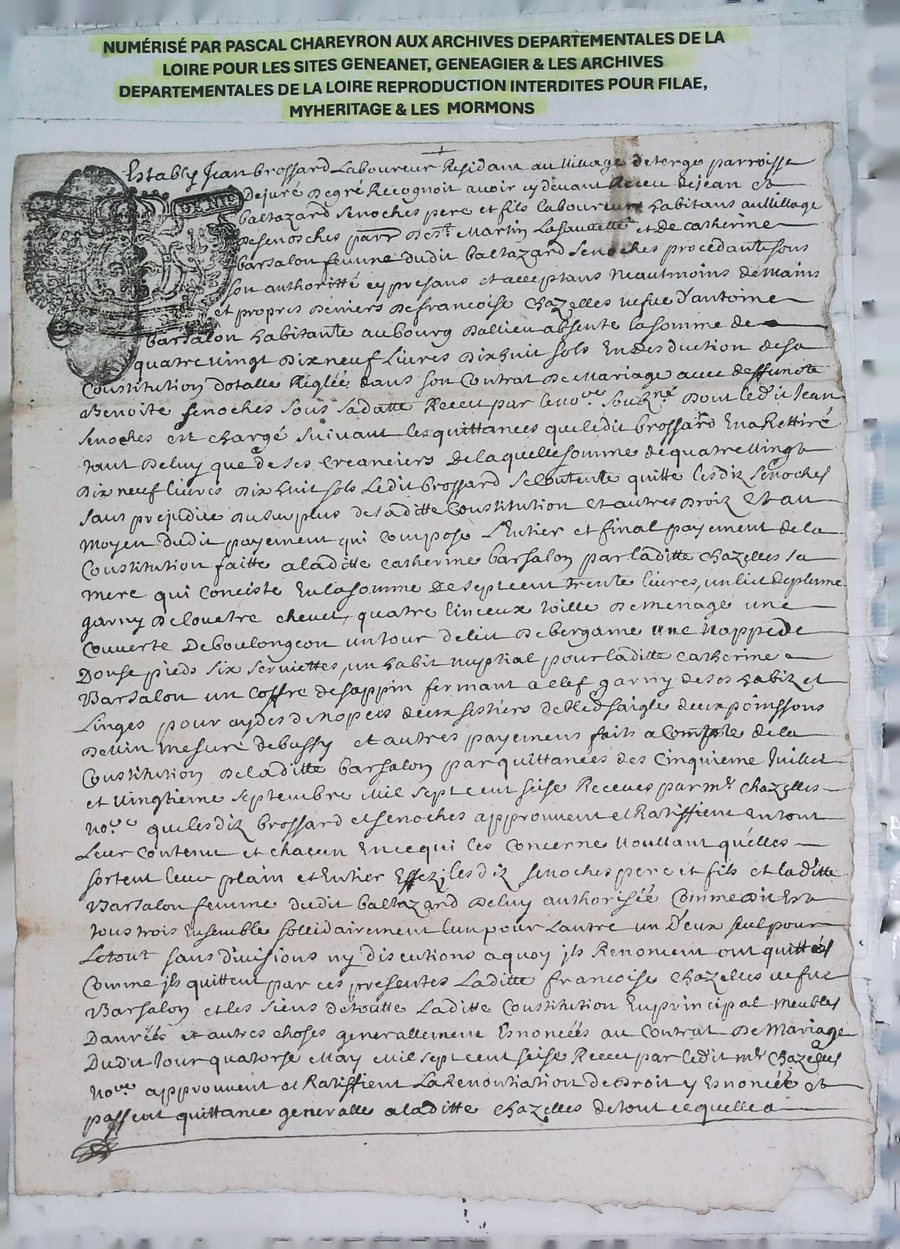 NUMÉRISÉ PAR PASCAL CHAREYRON AUX ARCHIVES DEPARTEMENTALES DE LA
LOIRE POUR LES SITES GENEANET, GENEAGIER & LES ARCHIVES
DEPARTEMENTALES DE LA LOIRE REPRODUCTION INTERDITES POUR FILAE,
MYHERITAGE & LES MORMONS
Estably Jean brossard Laboureur Residant au Village de terge parroisse
de juré de gré Recognoit avoir cy devant Receu de jean et
baltazard senoches pere et fils laboureurs habitans au Village
de senoches parr de st Martin La sauveté et de catherine
barsalon femme dudit baltazard senoches procedante sous
son authoritté cy presans et acceptans neautmoins de mains
et propres deniers de francoise chazelles vefve d'antoine
barsalon habitante au bourg d'allieu absente la somme de
quatre vingt dix neuf livres dix huit sols En desduction de sa
Constitution dotalle Reglée dans son Contrat de Mariage avec deffunte
Benoite senoches sous sa datte Receu par le nore soubzné dont ledit Jean
senoches est chargé suivant les quittances que ledit brossard En a Rettiré
tant de luy que de ses creanciers de laquelle somme de quatre vingt
dix neuf livres dix huit sols Ledit brossard se contente quitte lesdiz senoches
sans prejudice du surplus de sa ditte Constitution et autres droiz Et au
moyen dudit payement qui compose L'entier et final payement de la
Constitution faitte a laditte catherine barsalon par laditte chazelles sa
mere qui conciste En la somme de sept cent trente livres, un lict de plume
garny de couetre chevet, quatre linceux toille de menage une
couverte de boulongeon un tour de lict de bergame une nappe de
douse pieds six serviettes, un habit nuptial pour laditte catherine
Barsalon un coffre de sappin fermant a clef garny de ses habiz et
Linges pour aydes de nopces deux sistiers de bled saigle deux poinssons
de vin mesure de bussy et autres payemens faits a compte de la
Constitution de laditte barsalon par quittances des cinquieme Juillet
et vingtieme septembre mil sept cent seise Receues par mr chazelles
nore que lesdiz brossard et senoches approuvent et Ratiffient en tout
Leur contenu et chacun En ce qui les concerne voullant qu'elles
sortent leur plain et Entier Effez; lesdiz senoches pere et fils et laditte
Barsalon femme dudit baltazard de luy authorisée comme dit Est
tous trois Ensemble sollidairement l'un pour L'autre un D'eux seul pour
Le tout sans divisions ny discutions a quoy ils Renoncent ont quittés
Comme ils quittent par ces presentes Laditte francoise chazelles vefve
Barsalon et les siens de toutte Laditte Constitution En principal meubles
Danrées et autres choses generallement Esnoncées au Contrat de Mariage
Dudit Jour quatorse May mil sept cent seise Receu par ledit mr chazelles
nore approuvent et Ratiffient La Renontiation de Droit y Esnoncée et
passent quittance generalle a laditte chazelles de tout ce quelle a